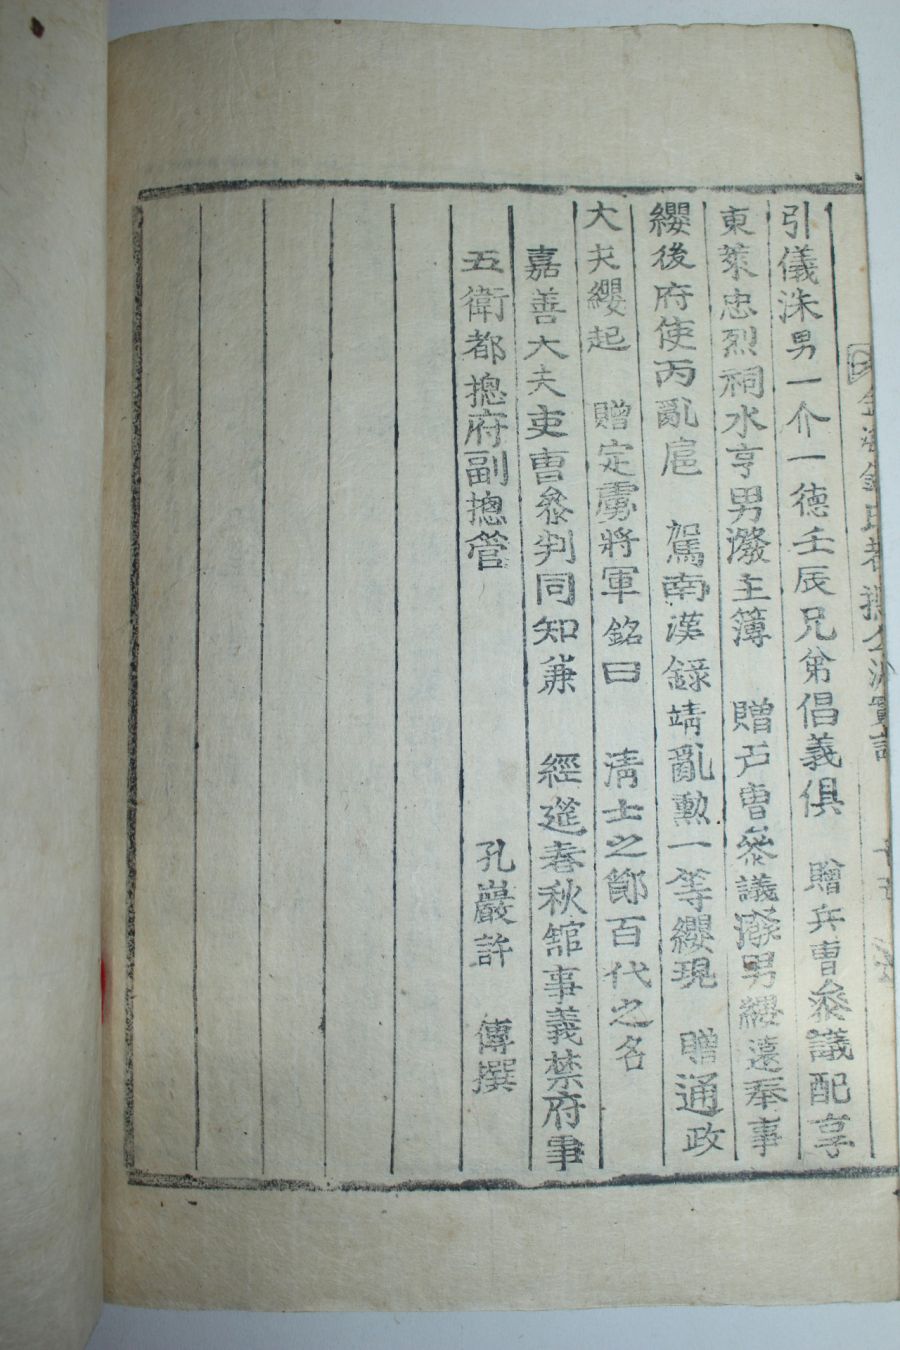 金海金氏孝襟公派實記
引儀洙男一介一德壬辰兄弟倡義俱 贈兵曹叅議配享
東萊忠烈祠水亨男潑主簿 贈戶曹叅議潑男纓遠奉事
纓後府使丙亂扈 駕南漢錄靖亂勳一等纓現 贈通政
大夫纓起 贈定虜將軍銘曰 淸士之節百代之名
嘉善大夫吏曹叅判同知兼 經筵春秋舘事義禁府事
五衛都摠府副摠管 孔巖許 傳撰